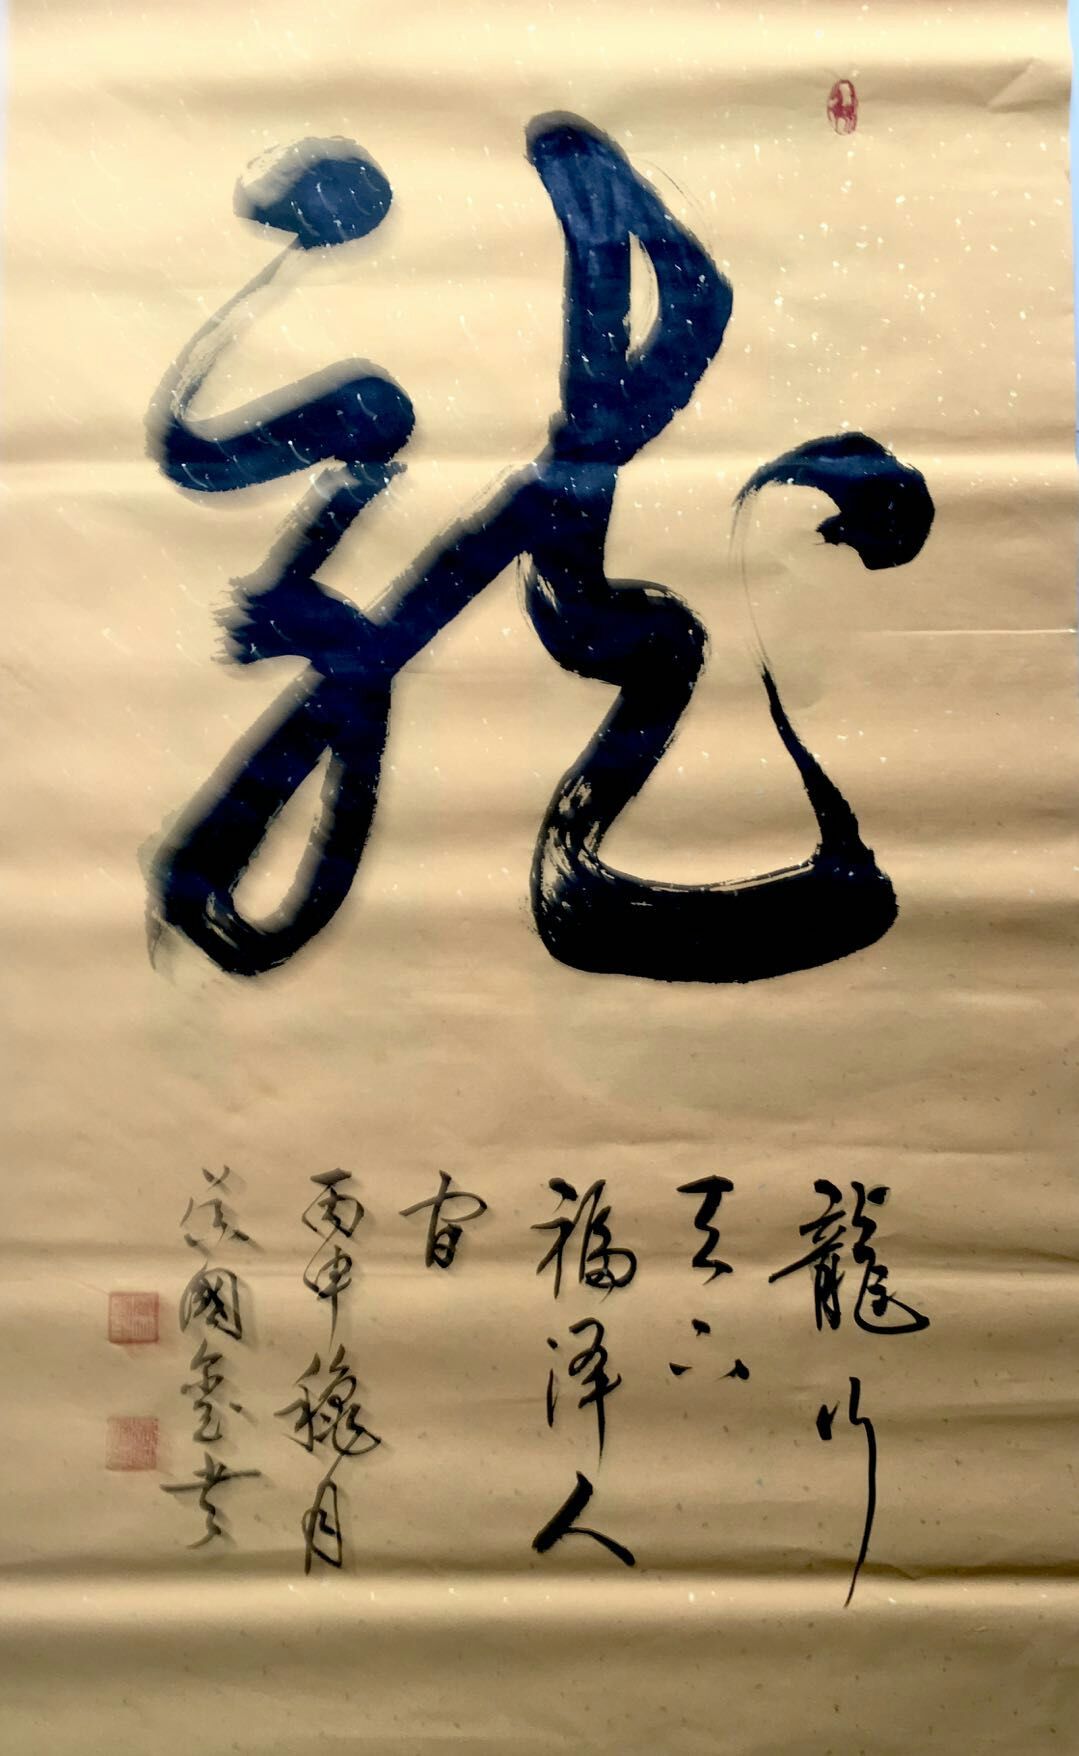 龍
龍行
天下
福澤人
間
丙申穐月
國玺书